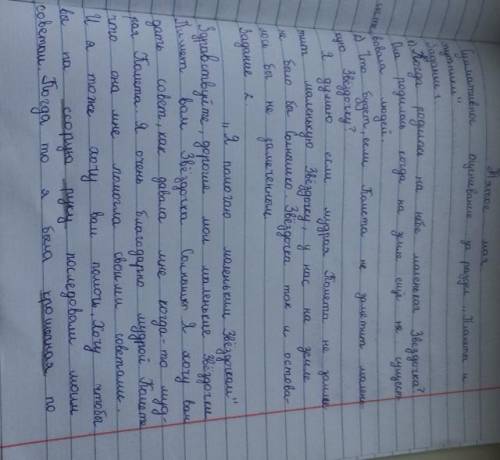 Пятое мая
Суммативное оценивание за раздел „Планета и
Задание 1.
1) Когда родилась на небе маленькая Звёздочка?
Она родилась когда на земле ещё не сущест-
вовала людей
2) Что будет, если Комета не заметит малень-
кую Звёздочку?
Я думаю если мудрая Комета не заме
тит маленькую Звёздочку, у нас на земле
не было ба солнышко Звёздочка так и остова-
лой бы не замеченной
Задание 2
„Я помогаю маленьким Звёздочкам"
Здравствуйте, дорогие мои маленькие Звёздочки
Пишет вам Звёздочка Солнышко Я хочу вам
дать совет как давала мне когда-то муд-
рая Комета Я очень благодарно мудрой Комете
что она мне помогла своими советами.
И я тоже хочу вам помочь. Хочу чтобы
вы по последовали моим
советам. Когда то я была по